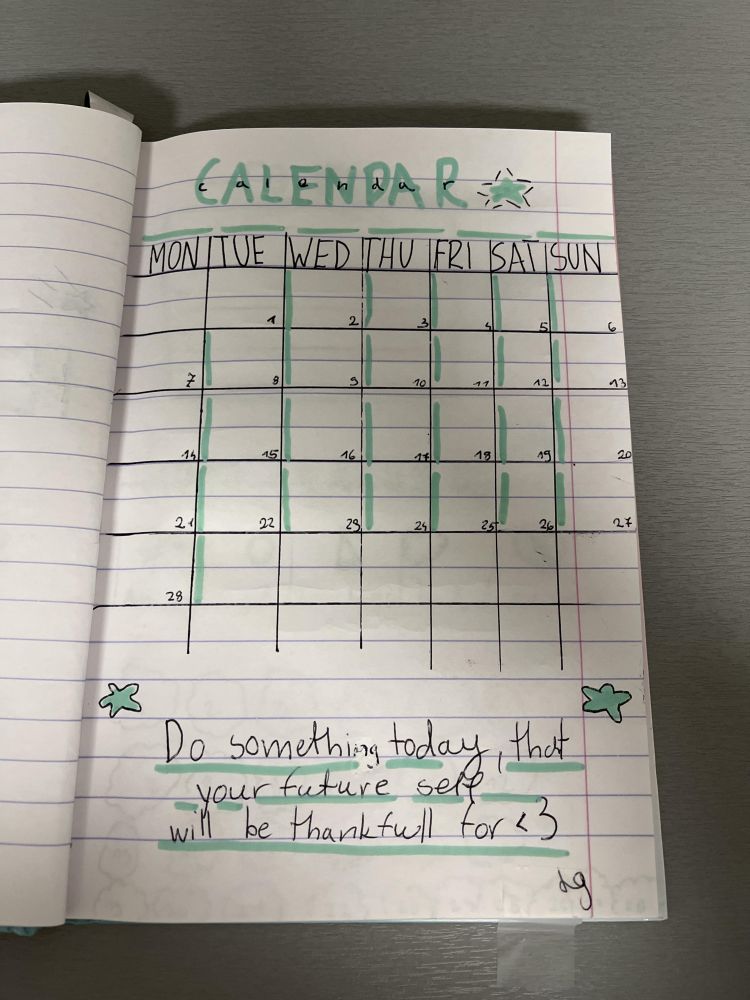 CALENDAR
calendar
MON TUE WED THU FRI SAT SUN
1 2 3 4 5 6
7 8 9 10 11 12 13
14 15 16 17 18 19 20
21 22 23 24 25 26 27
28
Do something today, that
your future self
will be thankfull for <3